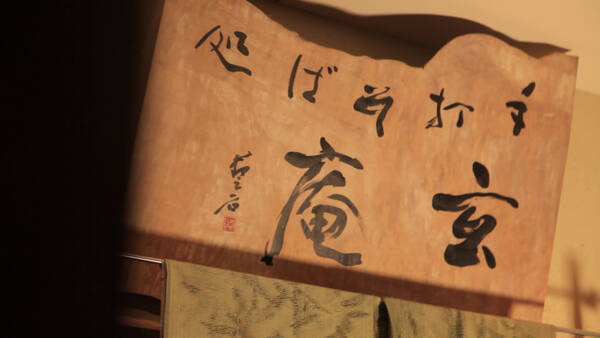 手打そば処
玄庵